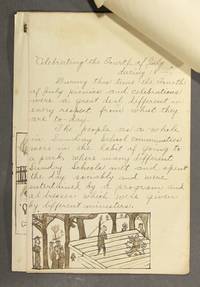 "Celebrating the Fourth of July
during
During this time the Fourth
of July picnics and celebrations
were a great deal different in
every respect from what they
are to-day.
The people as a whole
in Sunday school communities
were in the habit of going to
a park, where many different
Sunday schools met and spent
the day sociably and were
entertained by a program and
addresses which were given
by different ministers.